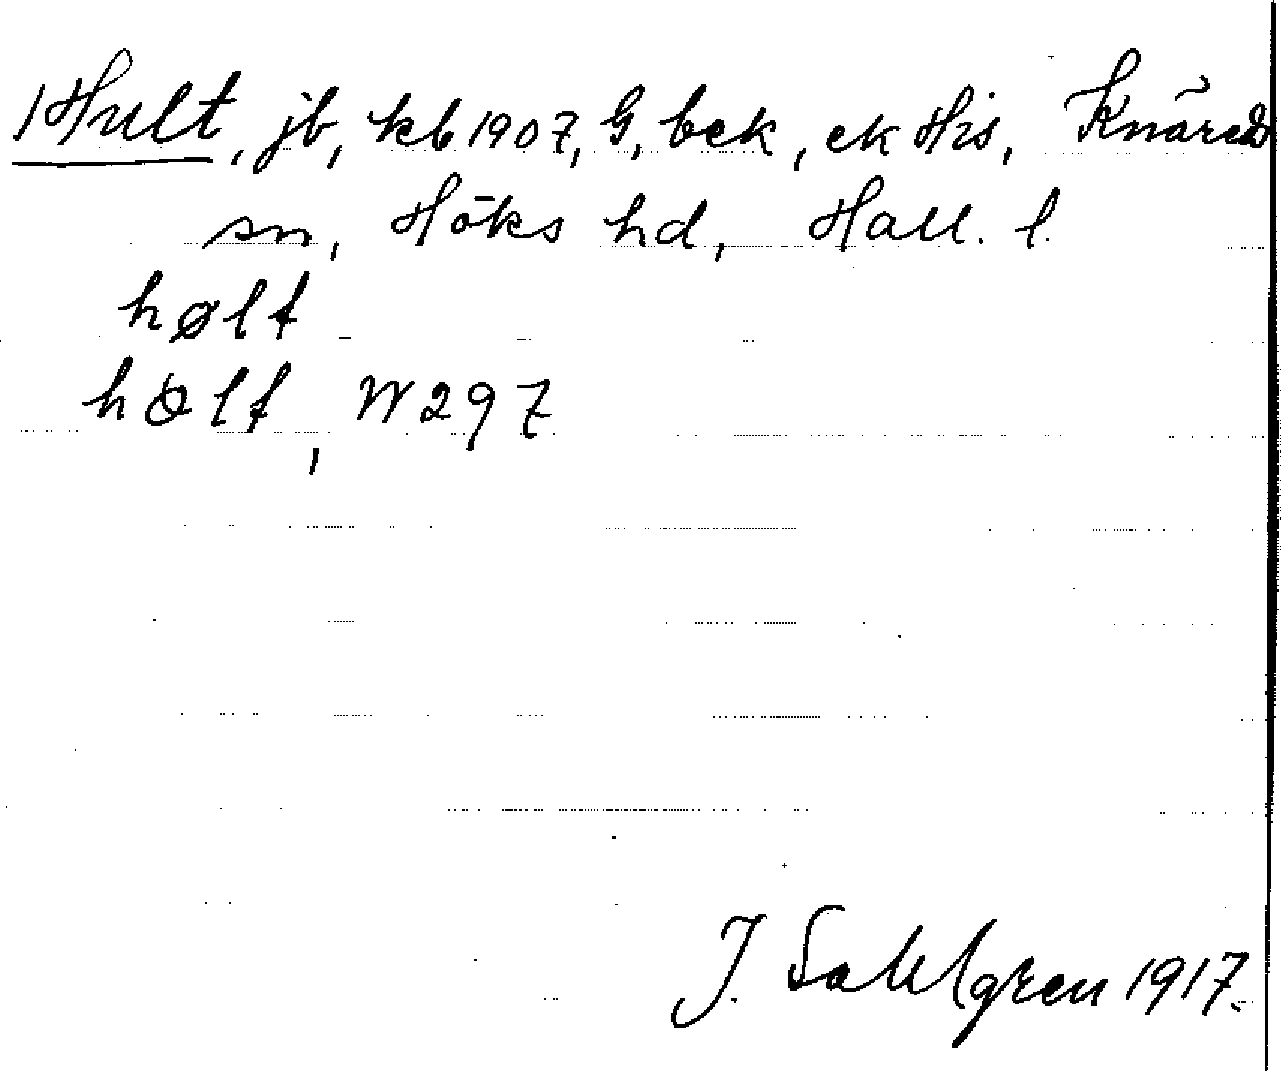 Hult, jb, kb 1907, G, bek, ek His, Knäred
sn, Höks hd, Hall. l.
hølt
hølt, W297
J. Sahlgren 1917.